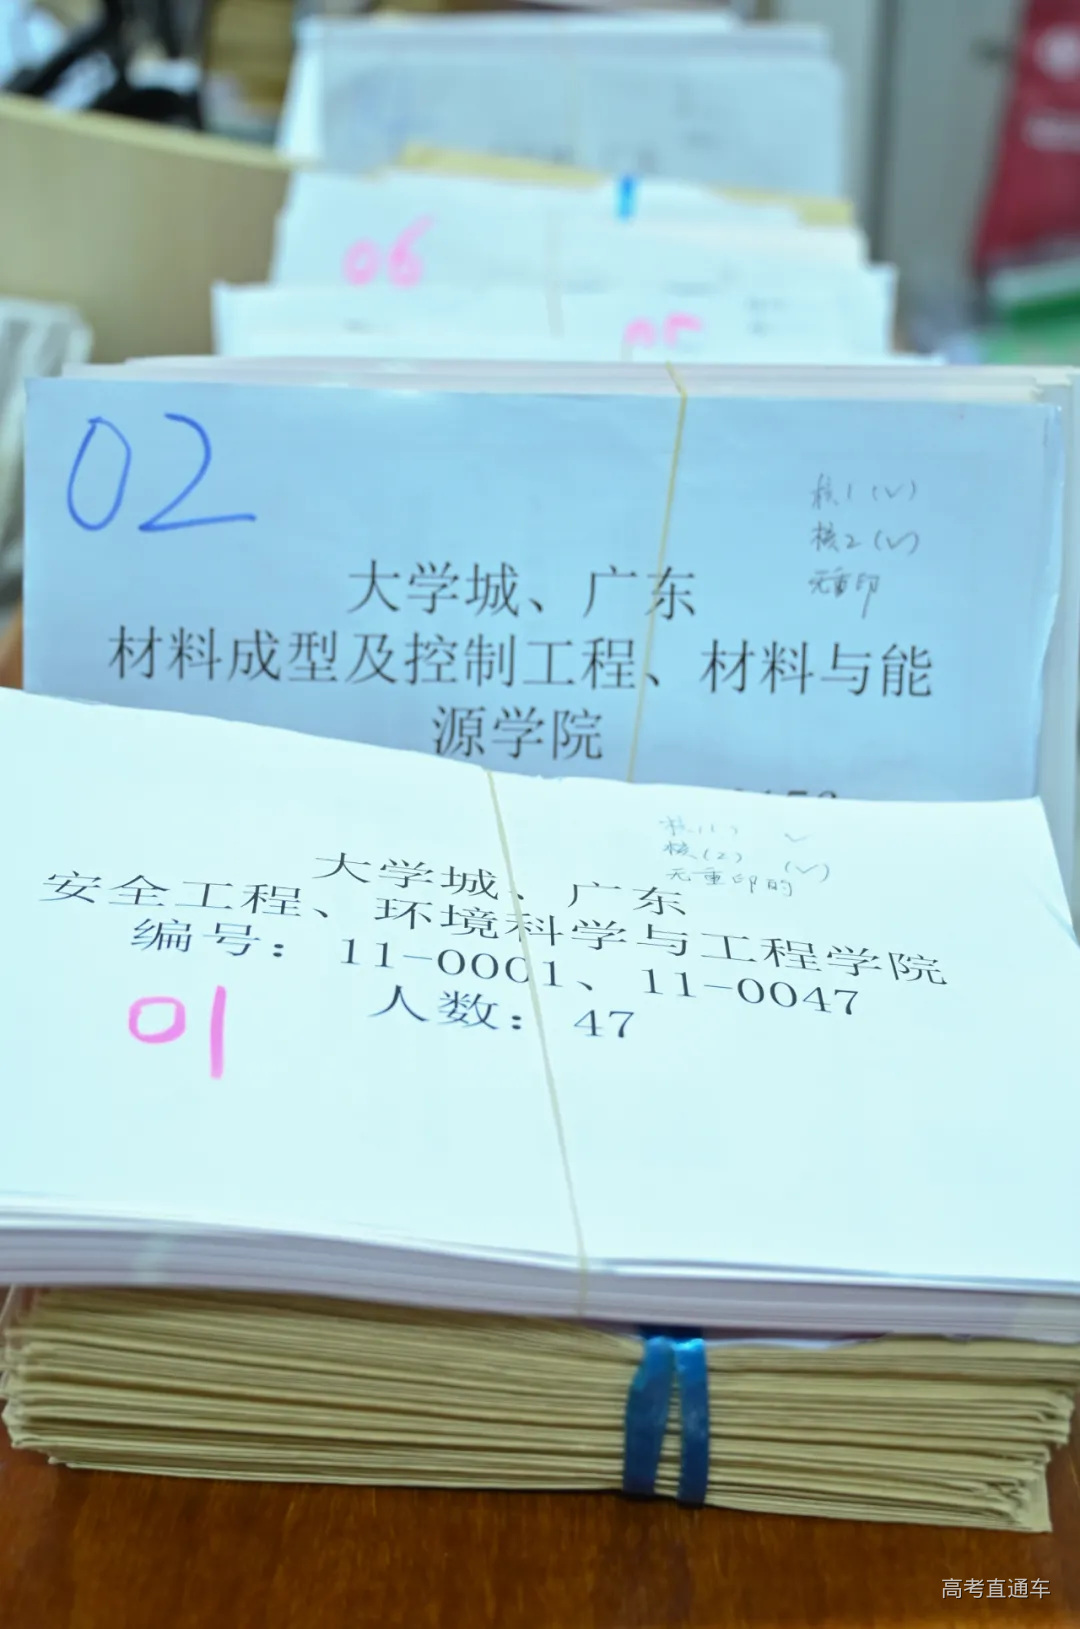 06
05
02
核1(√)
核2(√)
无重印
大学城、广东
材料成型及控制工程、材料与能
源学院
核(1) √
核(2) (√)
无重印的
大学城、广东
安全工程、环境科学与工程学院
编号： 11-0001、11-0047
人数： 47
01
高考直通车